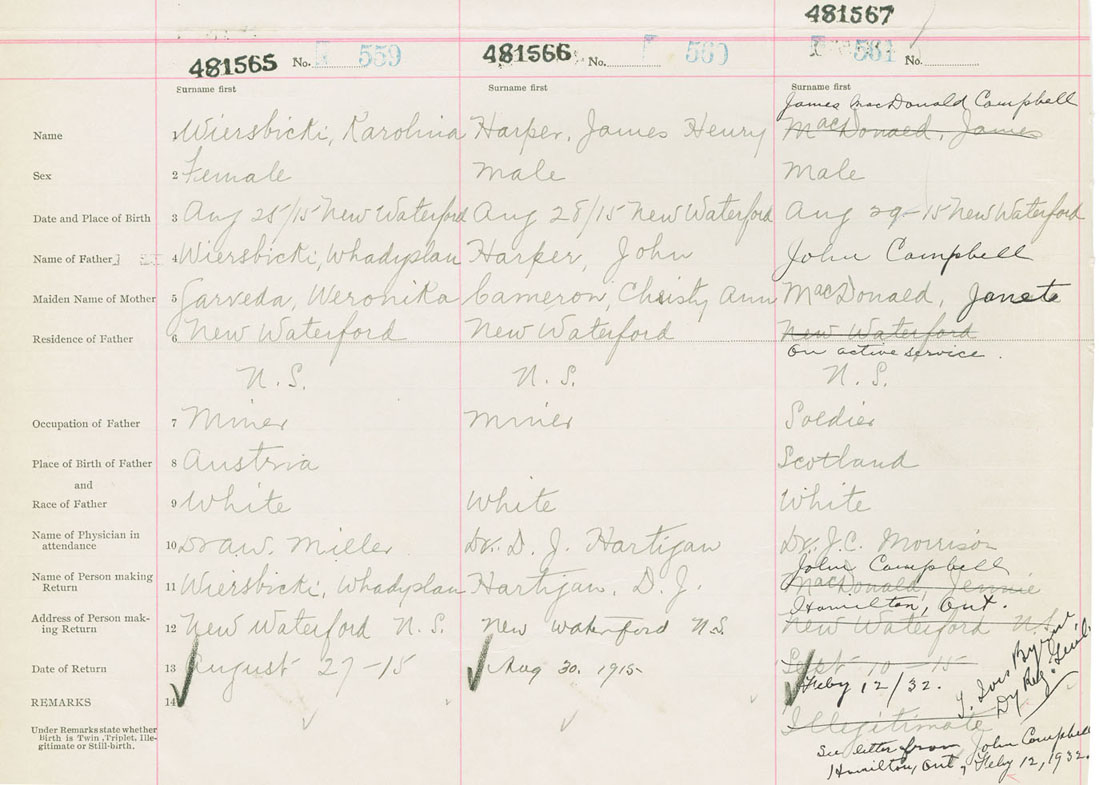 481567
481565 No. 559 481566 No. 560 561 No.
Surname first Surname first Surname first
James MacDonald Campbell
Name 1 Wiersbicki, Karolina Harper, James Henry MacDonald, James
Sex 2 Female Male Male
Date and Place of Birth 3 Aug 25/15 New Waterford Aug 28/15 New Waterford Aug 29-15 New Waterford
Name of Father 4 Wiersbicki, Whadyslau Harper, John John Campbell
Maiden Name of Mother 5 Garveda, Weronika Cameron, Christy Ann MacDonald, Janet
Residence of Father 6 New Waterford New Waterford New Waterford
On active service.
N.S. N.S. N.S.
Occupation of Father 7 Miner Miner Soldier
Place of Birth of Father 8 Austria Scotland
and
Race of Father 9 White White White
Name of Physician in
attendance 10 Dr. A.W. Miller Dr. D. J. Hartigan Dr. J.C. Morrison
John Campbell
Name of Person making
Return 11 Wiersbicki, Whadyslau Hartigan, D. J. MacDonald, Jennie
Hamilton, Ont.
Address of Person mak-
ing Return 12 New Waterford N.S. New Waterford N.S. New Waterford N.S.
Date of Return 13 August 27-15 Aug 30. 1915 Sept 10-15
Feby 12/32.
Dy Reg. Genl.
REMARKS 14
Illegitimate
Under Remarks state whether
Birth is Twin, Triplet, Ille-
gitimate or Still-birth.
See letter from John Campbell
Hamilton, Ont, Feby 12, 1932.